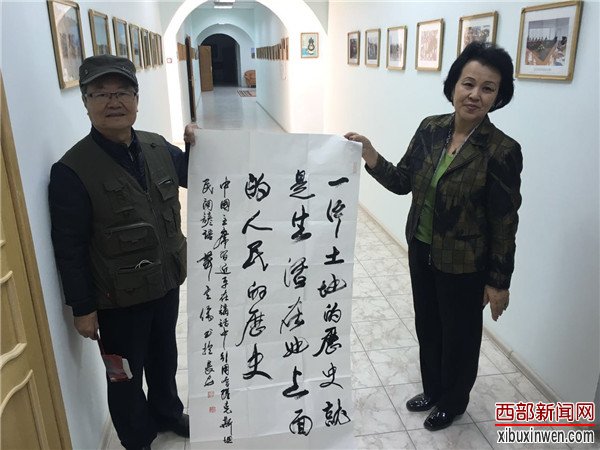 一片土地的歷史就
是生活在她上面
的人民的歷史
中國主席習近平在講話中引用哈薩克斯坦
民間諺語
西部新闻网
xibuxinwen.com